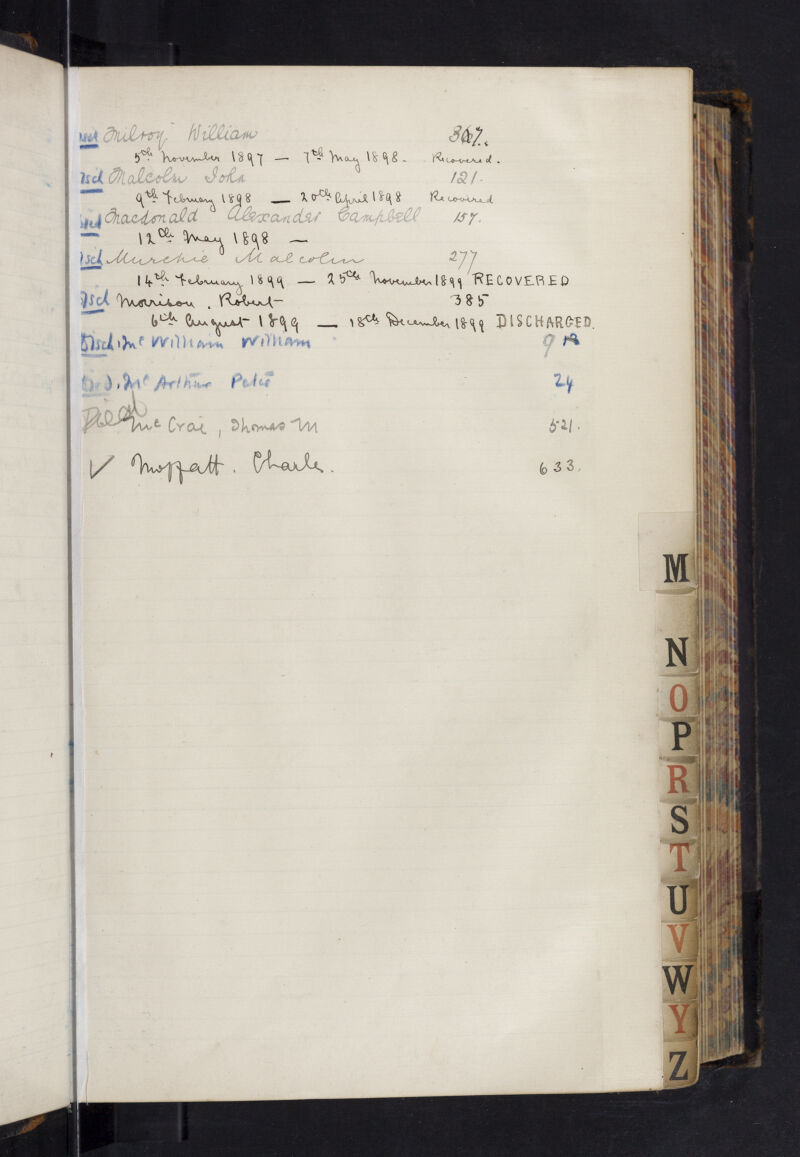 Dsch Milroy William 307.
5th November 1897 — 7th May 1898. Recovered.
Dsch Malcolm John 121.
9th February 1898 — 20th April 1898 Recovered
Macdonald Alexander Campbell 157.
12th May 1898 —
Dsch Murchie Malcolm 277
14th February 1899 — 25th November 1899 RECOVERED
Dsch Morrison. Robert 385
6th August 1899 — 18th December 1899 DISCHARGED.
Dsch. Mc William William
Mc Arthur Peter 24
Died Mc Crae, Thomas M 521.
✓ Moffatt. Charles. 633.
M
N
O
P
R
S
T
U
V
W
Y
Z